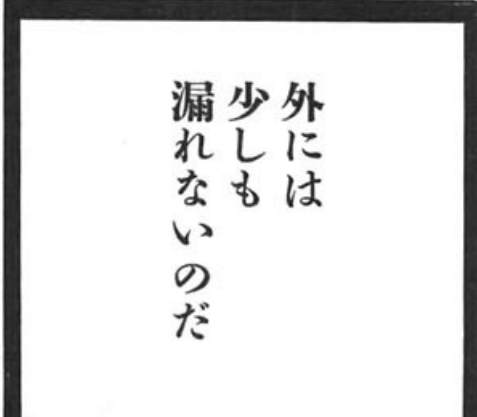 外には
少しも
漏れないのだ